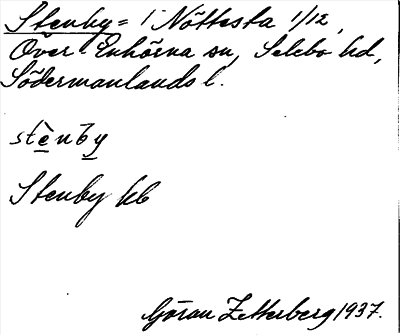 Stenby = i Nöttesta 1/12,
Över Enhörna sn, Selebo hd,
Södermanlands l.
stè̱nby̱
Stenby hb
Göran Zetterberg 1937.